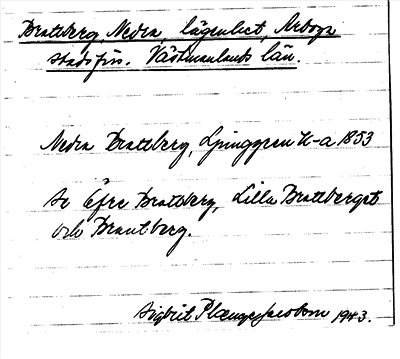 Brattberg, Nedra, lägenhet, Arboga
stadsförs. Västmanlands län.
Nedra Brattberg, Ljunggren K-a 1853
Se Öfre Brattberg, Lilla Brattberget
och Brantberg.
Sigbrit Plænge Jacobson 1943.